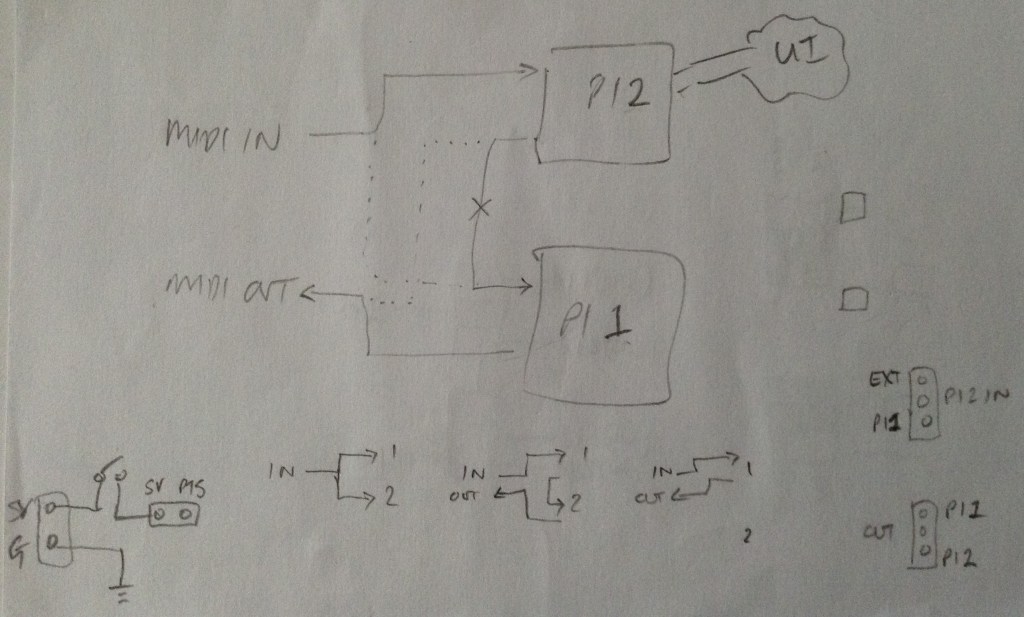 UI
PI2
MIDI IN
MIDI OUT
PI 1
EXT
PI2 IN
PI1
IN
1
2
IN
OUT
1
2
IN
OUT
1
2
5V
5V
G
OUT
PI1
PI2